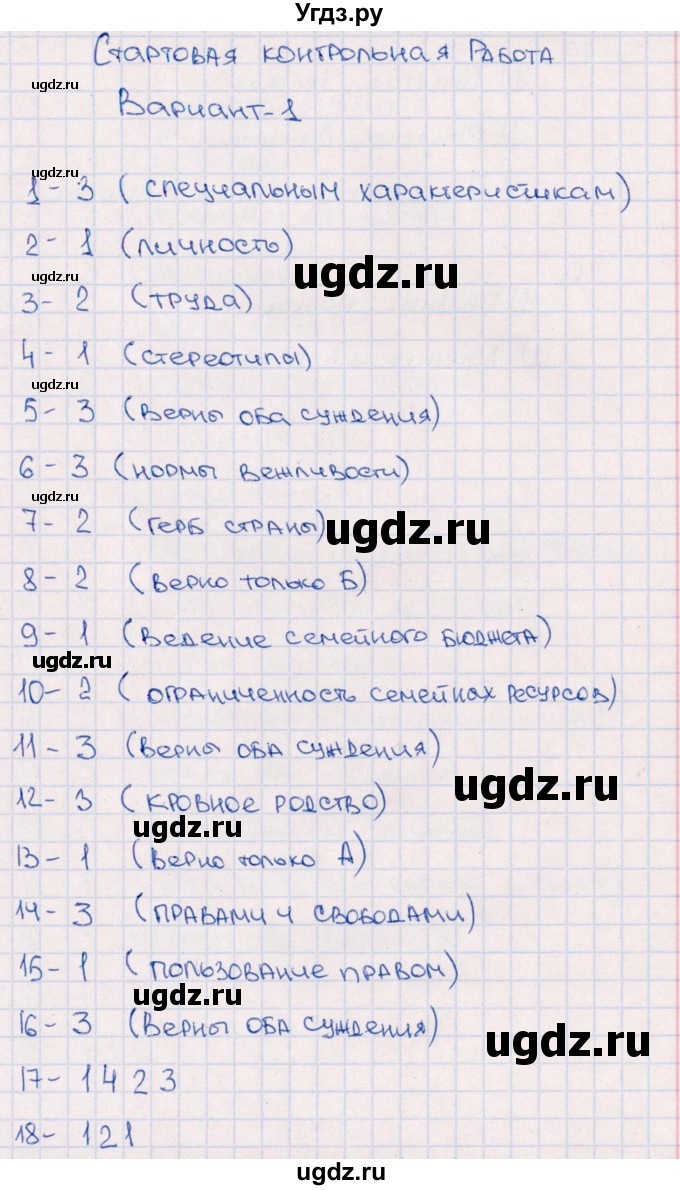 Угдз.ру
Стартовая контрольная работа
ugdz.ru
Вариант-1
ugdz.ru
1- 3 (специальным характеристикам)
ugdz.ru
2- 1 (личность)
ugdz.ru
ugdz.ru
3- 2 (труда)
4- 1 (стереотипы)
ugdz.ru
5- 3 (верны оба суждения)
6- 3 (нормы вежливости)
ugdz.ru
7- 2 (герб страны)
ugdz.ru
8- 2 (верно только Б)
9- 1 (ведение семейного бюджета)
ugdz.ru
10- 2 (ограниченность семейнах ресурсов)
11- 3 (верны оба суждения)
ugdz.ru
12- 3 (кровное родство)
ugdz.ru
13- 1 (верно только А)
14- 3 (правами и свободами)
15- 1 (пользование правом)
ugdz.ru
16- 3 (верны оба суждения)
ugdz.ru
17- 1423
18- 121
ugdz.ru